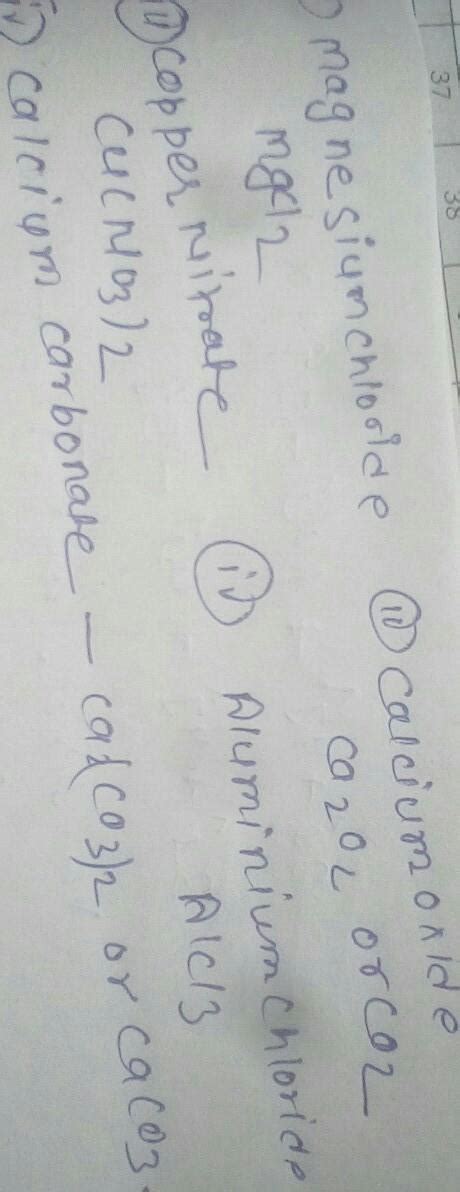 37 38
) magnesium chloride (ii) calcium oxide
mgcl2 ca2O2 or CO2
(ii) copper Nitrate (iv) Aluminium chloride
Cu(NO3)2 AlCl3
iv) calcium carbonate — ca2(CO3)2 or caCO3.